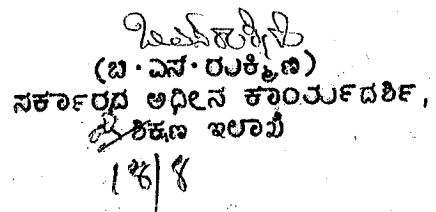 (ಬಿ.ಎಸ್.ರುಕ್ಮಿಣಿ)
ಸರ್ಕಾರದ ಅಧೀನ ಕಾರ್ಯದರ್ಶಿ,
ಶಿಕ್ಷಣ ಇಲಾಖೆ
18/8